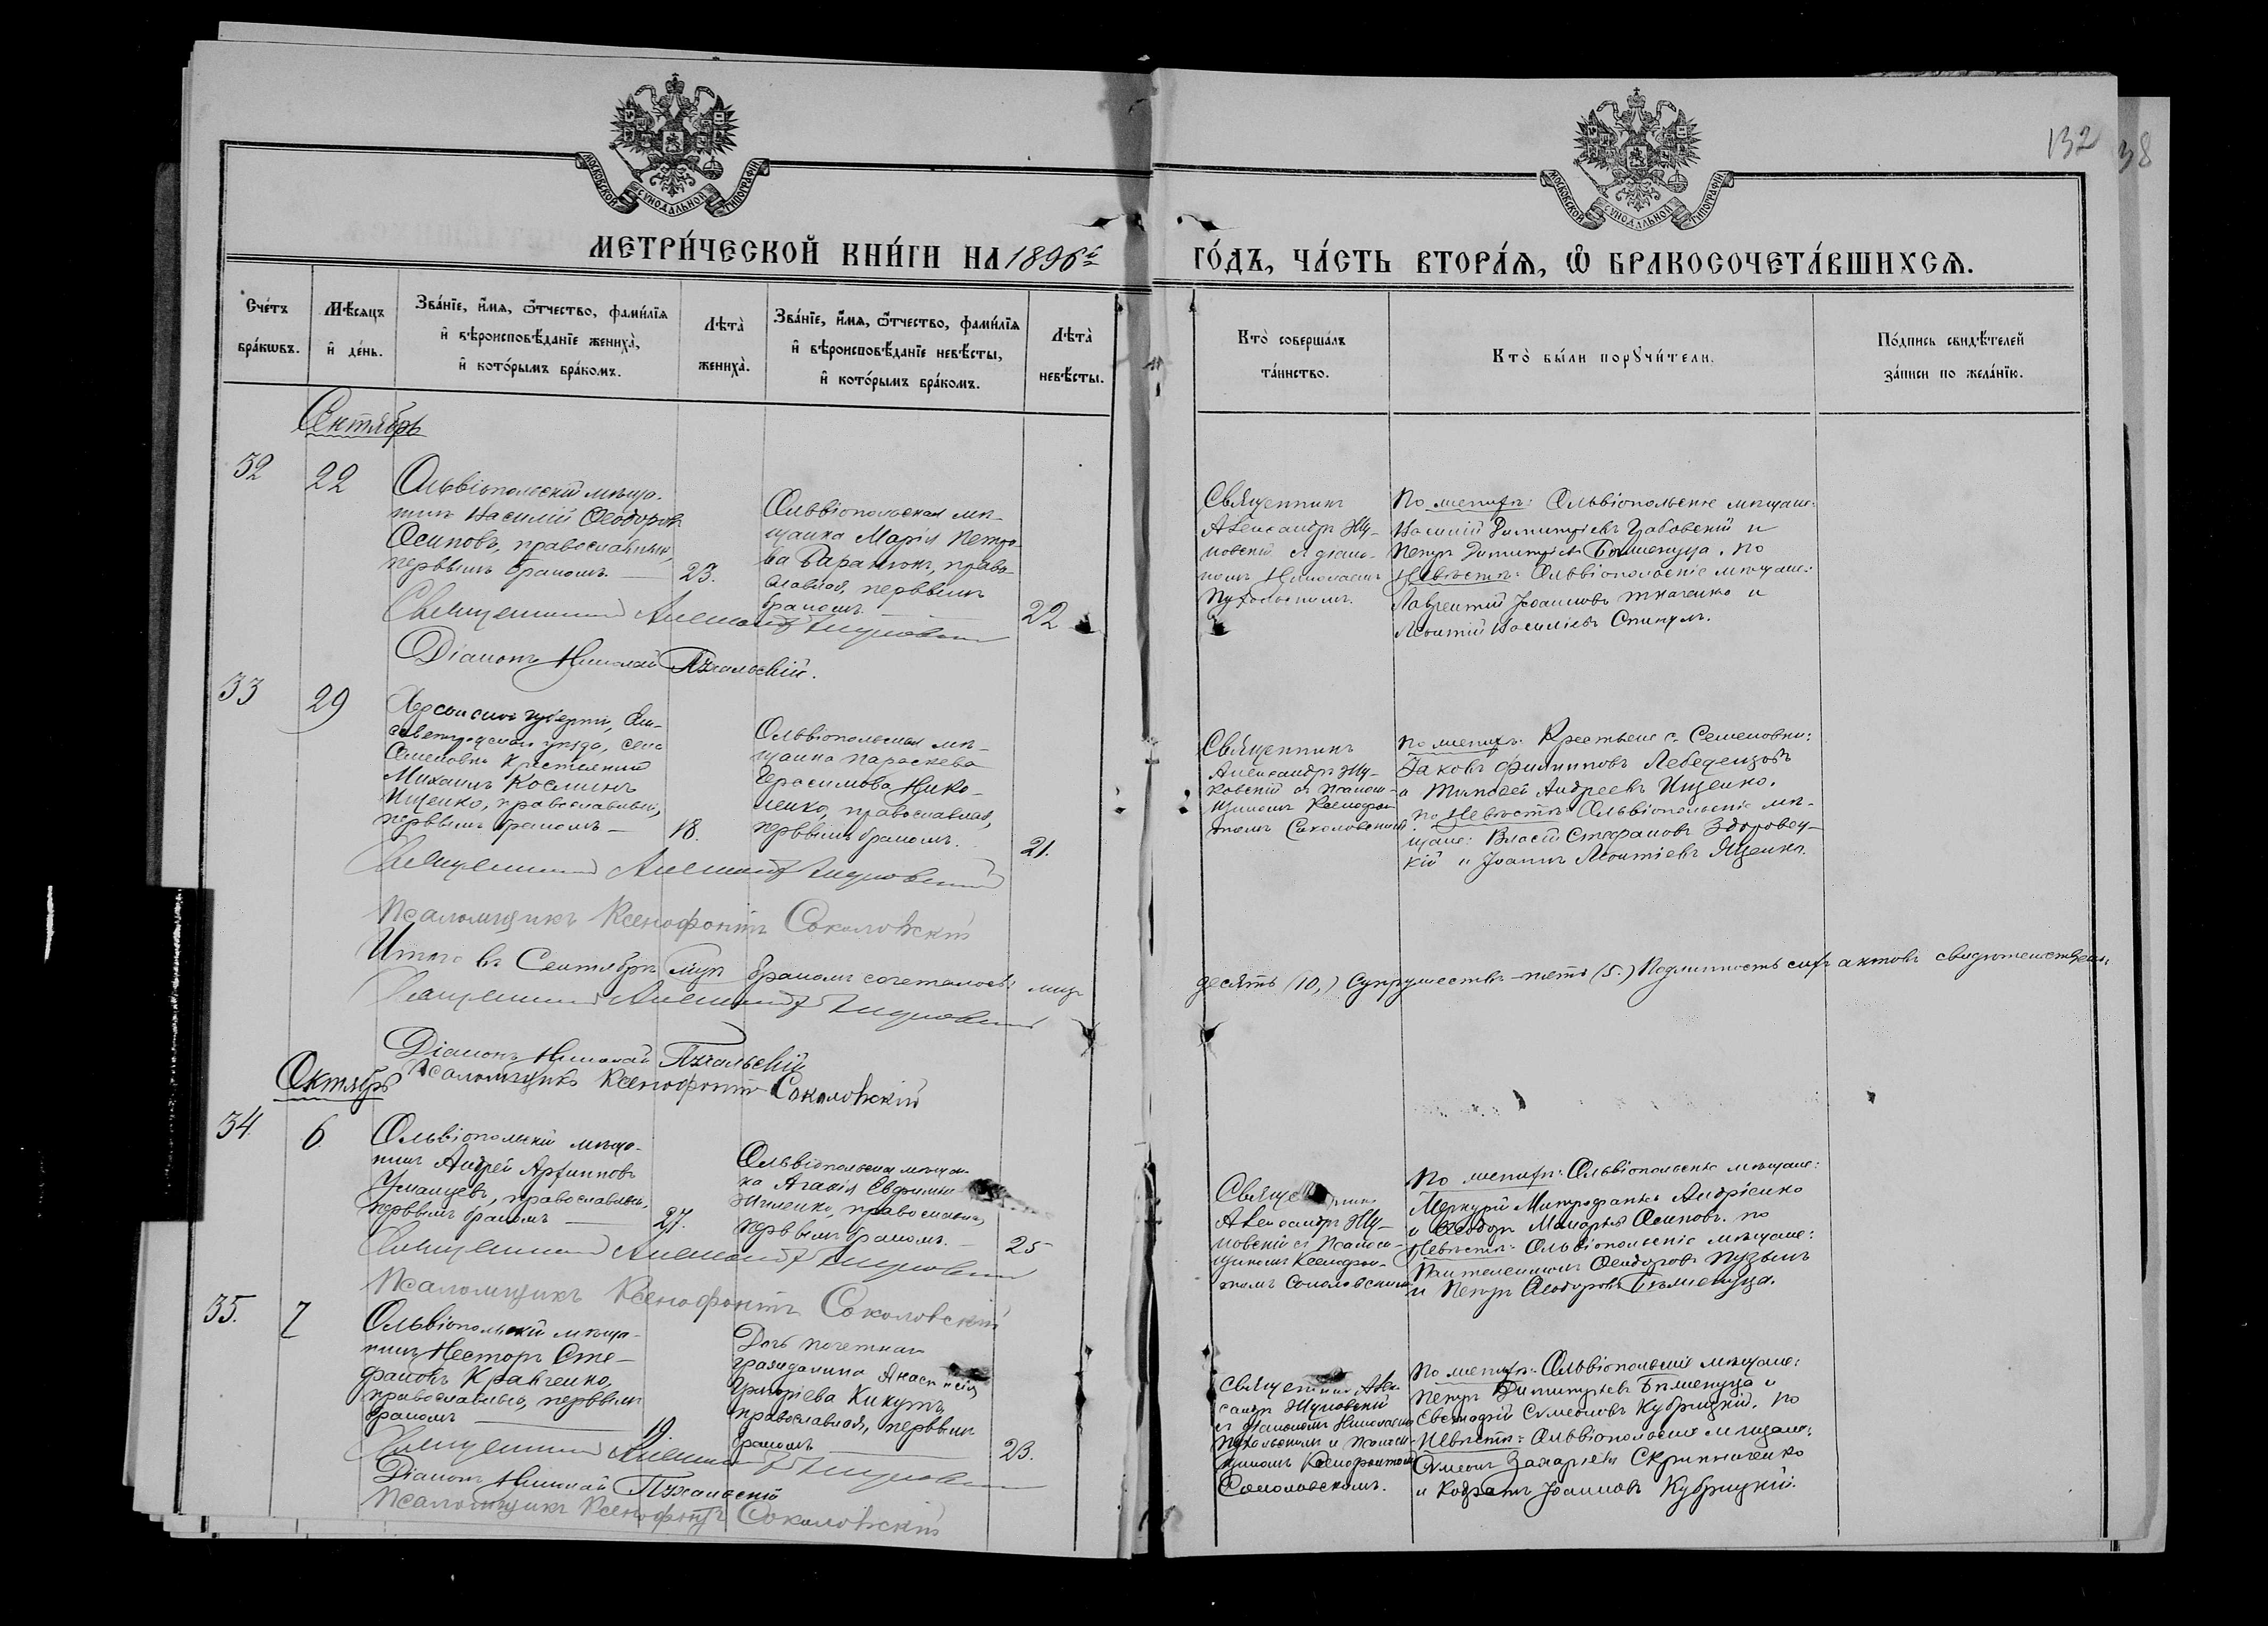 132 38
МОСКОВСКОЙ СѴНОДАЛЬНОЙ ТИПОГРАФІИ
МОСКОВСКОЙ СѴНОДАЛЬНОЙ ТИПОГРАФІИ
МЕТРИ́ЧЕСКОЙ КНИ́ГИ НА 1896й
ГО́ДЪ, ЧА́СТЬ ВТОРА́Ѧ, Ѽ БРАКОСОЧЕТА́ВШИХСѦ.
Сче́тъ
бра́кѡвъ.
Мѣ́сяцъ
и҆ де́нь.
Зва́нїе, и҆́мя, ѻ҆́тчество, фами́лїя
и҆ вѣроисповѣ́данїе жениха̀,
и҆ кото́рымъ бра́комъ.
Лѣта̀
жениха̀.
Зва́нїе, и҆́мя, ѻ҆́тчество, фами́лїя
и҆ вѣроисповѣ́данїе невѣ́сты,
и҆ кото́рымъ бра́комъ.
Лѣта̀
невѣ́сты.
Кто̀ соверша́лъ
та́инство.
Кто̀ бы́ли порꙋчи́тели.
По́дпись свидѣ́телей
за́писи по жела́нїю.
Сентябрь
32
22
Ольвіопольскій мѣща-
нинъ Василій Ѳеодоровъ
Осиповъ, православный,
первымъ бракомъ.
23.
Ольвіопольская мѣ-
щанка Марія Петро-
ва Таранюкъ, право-
славная, первымъ
бракомъ.
22
Священникъ
Александръ Жу-
ковскій съ діако-
номъ Николаемъ
По женихѣ: Ольвіопольскіе мѣщане:
Василій Димитріевъ и
Петръ Димитріевъ. По
Невѣстѣ: Ольвіопольскіе мѣщане:
Лаврентій Іоанновъ Ткаченко и
Леонтій Василіевъ
Священникъ Александръ Жуковскій
Діаконъ Николай
33
29
Херсонской губерніи, Ели-
саветградскаго уѣзда, села
Семеновки крестьянинъ
Михаилъ Косминъ
Ищенко, православный,
первымъ бракомъ
18.
Ольвіопольская мѣ-
щанка Параскева
Герасимова Нико-
ленко, православная,
первымъ бракомъ.
21.
Священникъ
Александръ Жу-
ковскій съ псалом-
щикомъ Ксенофон-
томъ Соколовскимъ
По женихѣ: Крестьяне с. Семеновки:
Іаковъ Филипповъ Лебединцовъ
и Тимоѳей Андреевъ Ищенко.
По Невѣстѣ: Ольвіопольскіе мѣ-
щане: Власій Стефановъ Здоровец-
кій и Іоаннъ Леонтіевъ Яценко.
Священникъ Александръ Жуковскій
Псаломщикъ Ксенофонтъ Соколовскій
Итого въ Сентябрѣ м-цѣ бракомъ сочеталось: лицъ
десять (10,) Супружествъ – пять (5.) Подлинность сихъ актовъ свидѣтельствуемъ
Священникъ Александръ Жуковскій
Діаконъ Николай
Псаломщикъ Ксенофонтъ Соколовскій
Октябрь
34.
6.
Ольвіопольскій мѣща-
нинъ Андрей Архиповъ
Уманцевъ, православный,
первымъ бракомъ
27.
Ольвіопольская мѣщан-
ка Агаѳія
православная,
первымъ бракомъ.
25
Священникъ
Александръ Жу-
ковскій съ Псалом-
щикомъ Ксенофон-
томъ Соколовскимъ
По женихѣ: Ольвіопольскіе мѣщане:
Меркурій Митрофановъ Андріенко
и Ѳеодоръ Макарьевъ Осиповъ. По
Невѣстѣ: Ольвіопольскіе мѣщане:
Пантелеимонъ Ѳеодоровъ
и Петръ Ѳеодоровъ
Священникъ Александръ Жуковскій
Псаломщикъ Ксенофонтъ Соколовскій
35.
7
Ольвіопольскій мѣща-
нинъ Несторъ Сте-
фановъ Кравченко,
православный, первымъ
бракомъ
19.
Дочь почетнаго
гражданина Анастасія
Григоріева Кикутъ,
православная, первымъ
бракомъ
23.
Священникъ Алек-
сандръ Жуковскій
съ діакономъ Николаемъ
и Псалом-
щикомъ Ксенофонтомъ
Соколовскимъ.
По женихѣ: Ольвіопольскіе мѣщане:
Петръ Димитріевъ и
Евстафій Симеоновъ Кубрицкій. По
Невѣстѣ: Ольвіопольскіе мѣщане:
Симеонъ Захаріевъ Скрипниченко
и Кодратъ Іоанновъ Кубрицкій.
Священникъ Александръ Жуковскій
Діаконъ Николай
Псаломщикъ Ксенофонтъ Соколовскій